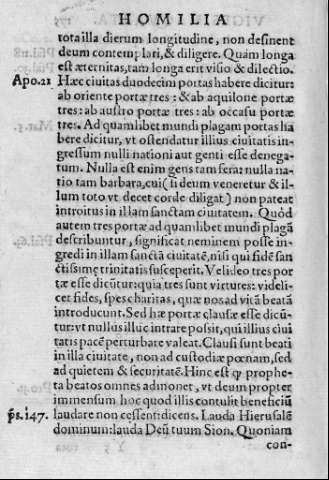 HOMILIA
tota illa dierum longitudine, non desinent
deum contemplati, & diligere. Quam longa
est æternitas, tam longa erit visio & dilectio.
Apo.21 Hæc ciuitas duodecim portas habere dicitur:
ab oriente portæ tres: & ab aquilone portæ
tres: ab austro portæ tres: ab occasu portæ
tres. Ad quamlibet mundi plagam portas ha
bere dicitur, vt ostendatur illius ciuitatis in-
gressum nulli nationi aut genti esse denega-
tum. Nulla est enim gens tam fera: nulla na-
tio tam barbara, cui (si deum veneretur & il-
lum toto vt decet corde diligat) non pateat
introitus in illam sanctam ciuitatem. Quòd
autem tres portæ ad quamlibet mundi plagã
describuntur, significat neminem posse in-
gredi in illam sanctã ciuitatẽ, nisi qui fidẽ san
ctissimę trinitatis susceperit. Vel ideo tres por
tæ esse dicũtur: quia tres sunt virtutes: videli-
cet fides, spes charitas, quæ nos ad vitã beatã
introducunt. Sed hæ portæ clausæ esse dicũ-
tur: vt nullus illuc intrare possit, qui illius ciui
tatis pacẽ perturbare valeat. Clausi sunt beati
in illa ciuitate, non ad custodiæ pœnam, sed
ad quietem & securitatẽ. Hinc est ꝙ prophe-
ta beatos omnes admonet, vt deum propter
immensum hoc quod illis contulit beneficiũ
ps.147. laudare non cessent: dicens. Lauda Hierusalẽ
dominum: lauda Deũ tuum Sion. Quoniam
con-